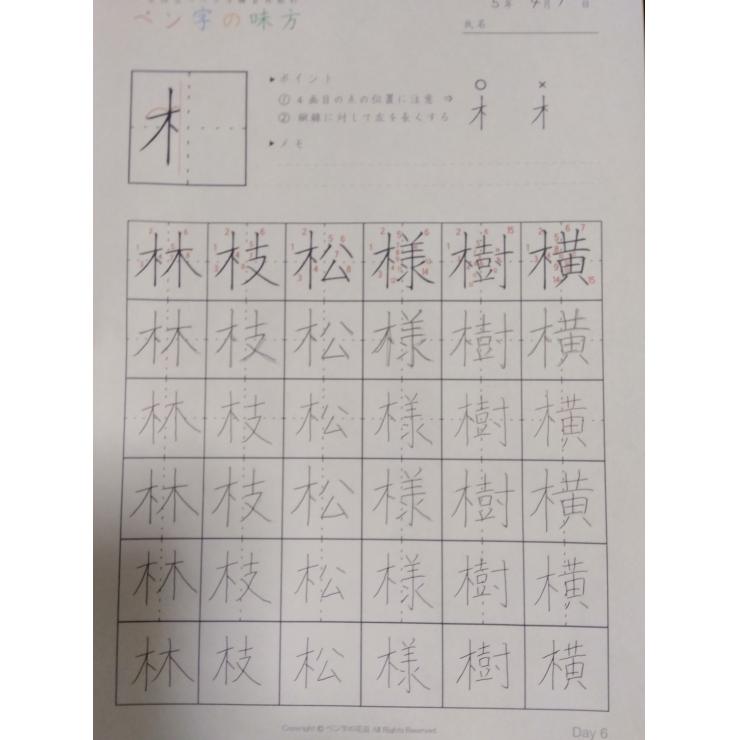 ペン字の味方
5年 4月7日
氏名
木
▶ポイント
① 4画目の点の位置に注意 ⇒
② 縦線に対して左を長くする
▶メモ
○ ×
木 木
林 枝 松 様 樹 横
林 枝 松 様 樹 横
林 枝 松 様 樹 横
林 枝 松 様 樹 横
林 枝 松 様 樹 横
林 枝 松 様 樹 横
Copyright © ペン字の花園 All Rights Reserved.
Day 6